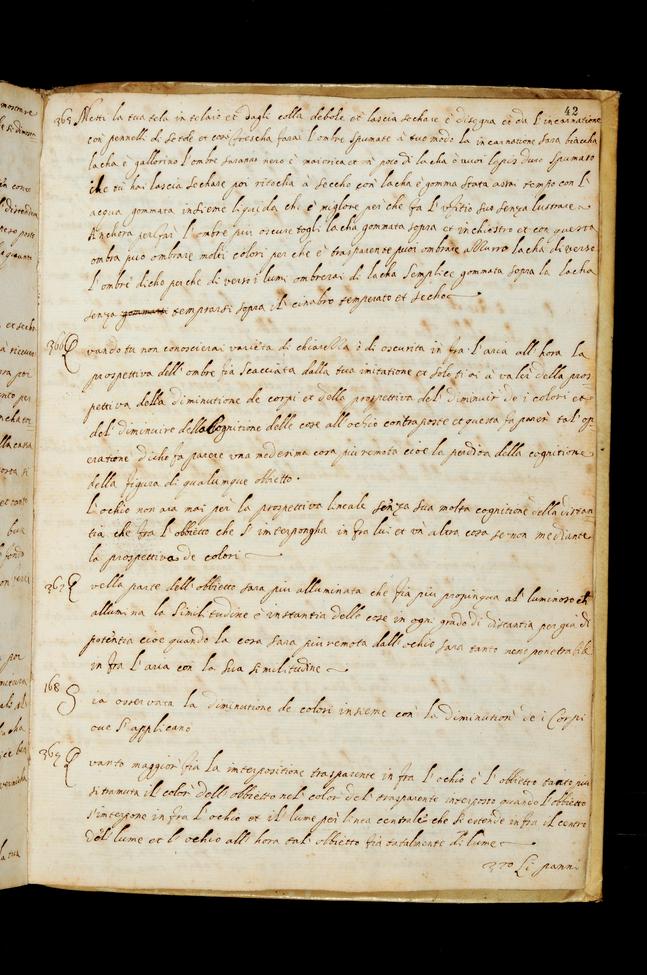 42
365 Metti la tua tela in telaio et dagli colla debole et lascia sechare e disegna et da l' incarnatione
con pennelli di setole et cosi frescha farai l' ombre spumate a tuo modo la incarnatione sara biacha
lacha e gallorino l' ombre saranno nero e maiorica et un poco di lacha o vuoi lapis duro spumato
che tu hai lascia sechare poi ritocha à secho con lacha e gomma stata assai tempo con l'
acqua gommata insieme liquida che e miglore per che fa l' ofitio suo senza lustrare
Anchora per far l' ombre piu oscure togli lacha gommata sopra et inchiostro et con questa
ombra puo ombrare molti colori per che è trasparente puoi ombrare azzurro lacha di verso
l' ombre dicho per che di verso i lumi ombrerai di lacha semplice gommata sopra la lacha
senza temprarsi sopra il cinabro temperato et secho
366 Q
vando tu non conoscierai varietà di chiarezza ò di oscurita in fra l' aria all' hora la
prospettiva dell' ombre fia scacciata dalla tua imitatione et solo ti ai à valer della pros
pettiva della diminutione de corpi et della prospettiva del diminuir de i colori et
del diminuire della Cognitione delle cose all' ochio contraposte et questa fa parer tal' op
eratione dicho fa parere una medesima cosa piu remota cioè la perdita della cognitione
della figura di qualumque obbietto.
L' ochio non ara mai per la prospettiva lineale senza sua molta cognitione della distan
tia che fra l' obbietto che s' interpongha in fra lui et un' altra cosa se non mediante
la prospettiva de colori
367 Q
vella parte dell' obbietto sara piu alluminata che fia piu propinqua al luminoso ch'
allumina la similitudine ò instantia delle cose in ogni grado di distantia per gia di
potentia cioe quando la cosa sara piu remota dall' ochio sara tanto meno penetrabile
in fra l' aria con la sua similitudine
168 S
ia osservata la diminutione de colori insieme con la diminution' de i Corpi
ove s' applicano
369 Q
vanto maggior fia la interpositione trasparente in fra l' ochio è l' obbietto tanto piu
si tramuta il color' dell' obbietto nel' color del' trasparente interposto quando l' obbietto
s' interpone in fra l' ochio et il lume per linea centrale che si estende in fra il centro
del lume et l' ochio all' hora tal' obbietto fia totalmente di lume
370 Li panni